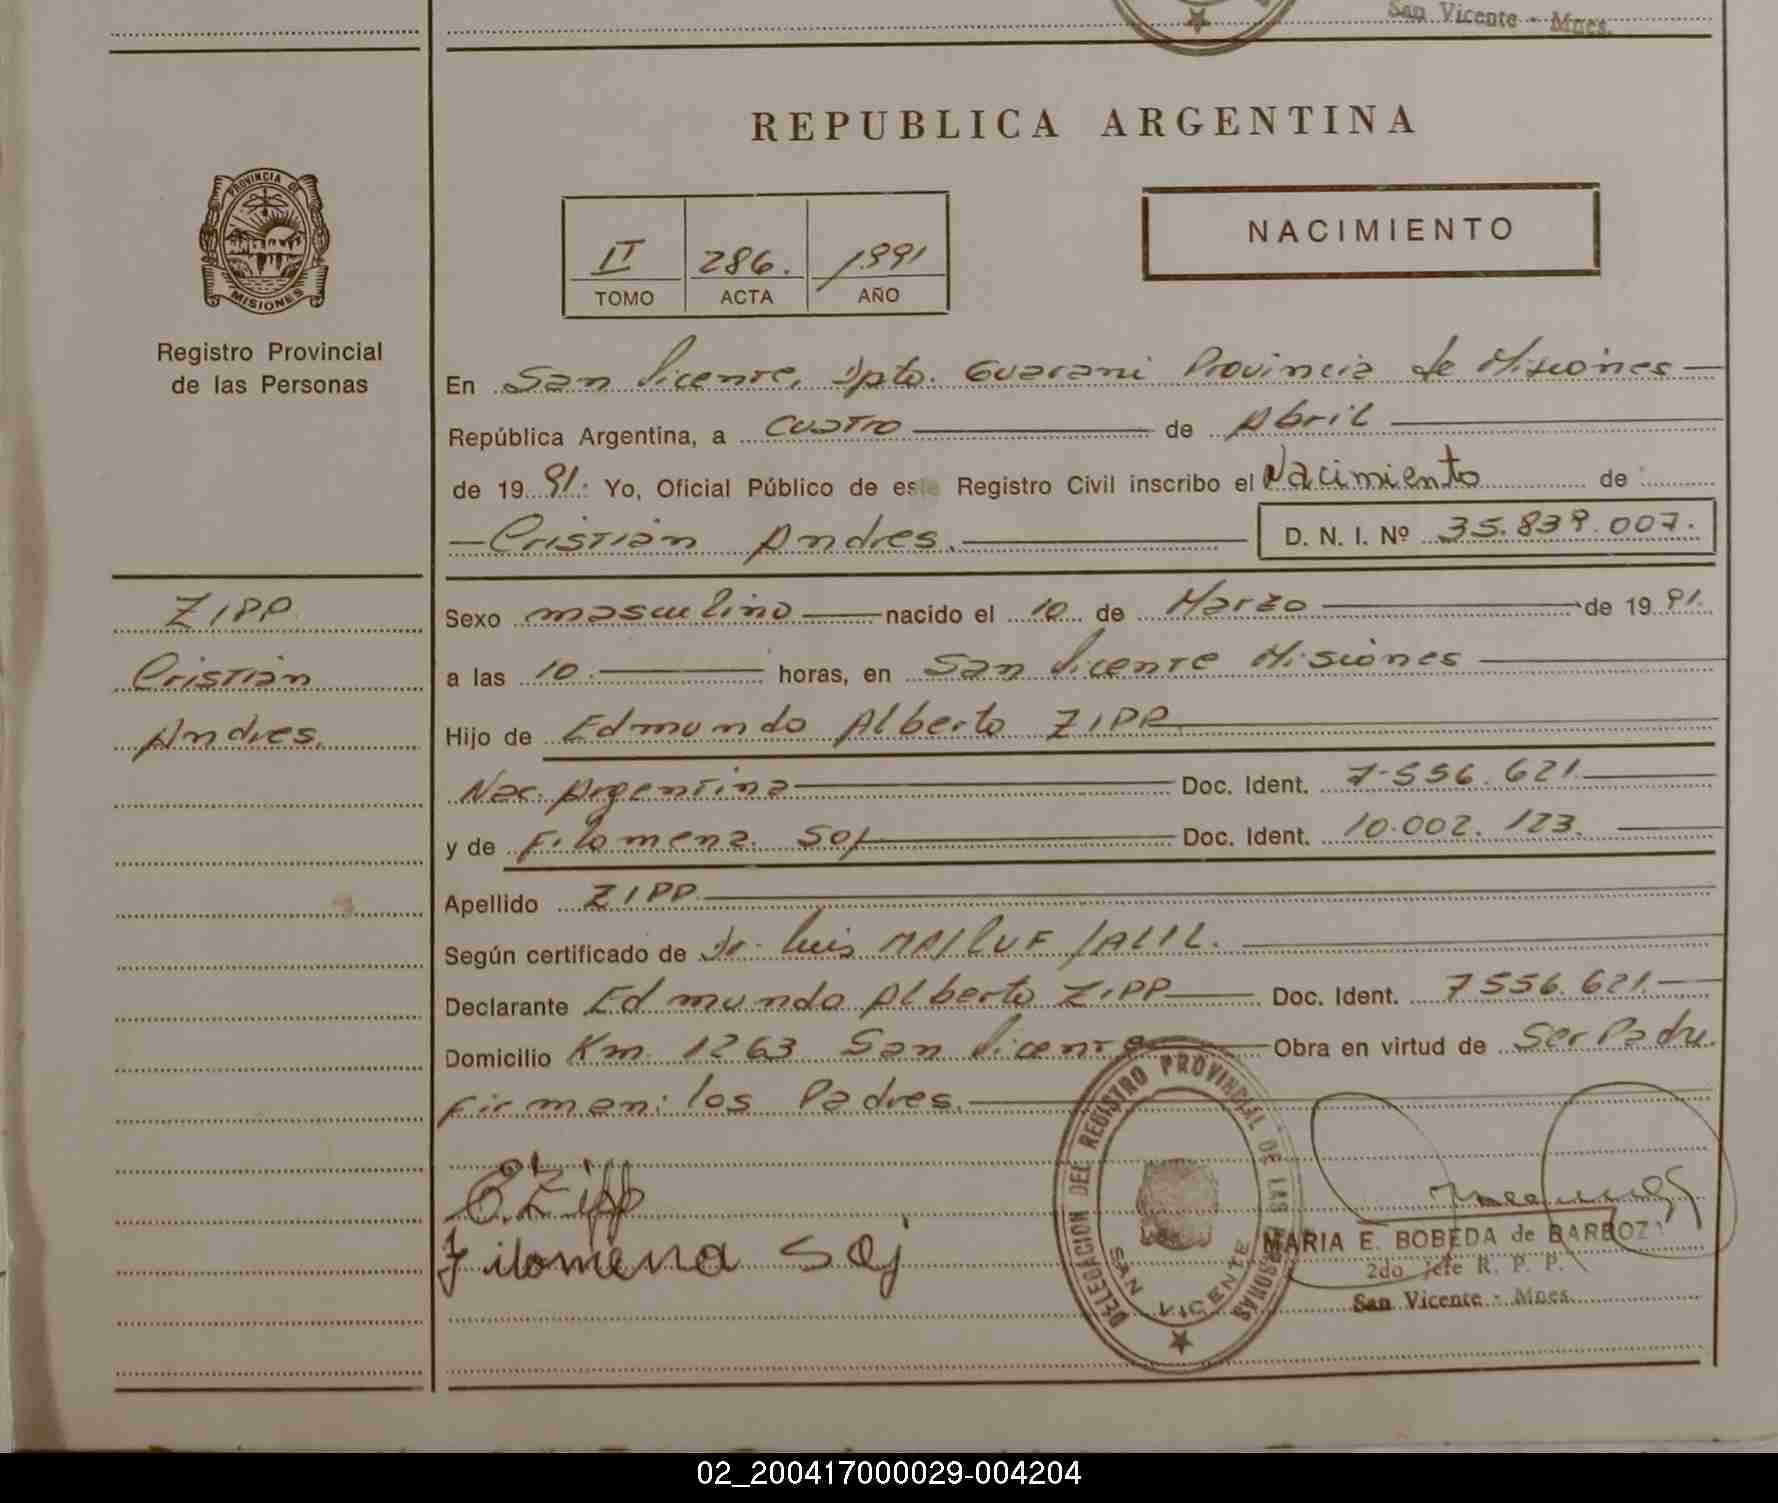 San Vicente - Mnes.
REPUBLICA ARGENTINA
PROVINCIA DE
MISIONES
Registro Provincial
de las Personas
NACIMIENTO
II 286. 1991
TOMO ACTA AÑO
En San Vicente, Dpto. Guarani Provincia de Misiones
República Argentina, a cuatro de Abril
de 1991. Yo, Oficial Público de este Registro Civil inscribo el Nacimiento de
Cristián Andres. D. N. I. Nº 35.839.007.
ZIPP
Cristián
Andres.
Sexo masculino nacido el 10 de Marzo de 1991.
a las 10. horas, en San Vicente Misiones
Hijo de Edmundo Alberto ZIPP
Nac. Argentina Doc. Ident. 7.556.621.
y de Filomena Soj Doc. Ident. 10.002.123.
Apellido ZIPP.
Según certificado de Dr. Luis MAJLUF JALIL.
Declarante Edmundo Alberto ZIPP Doc. Ident. 7556.621.
Domicilio Km. 1263 San Vicente Obra en virtud de Ser Padre.
Firman: los Padres.
E. Zipp
Filomena Soj
DELEGACION DEL REGISTRO PROVINCIAL DE LAS PERSONAS
SAN VICENTE
MARIA E. BOBEDA de BARBOZA
2do jefe R. P. P.
San Vicente - Mnes.
02_200417000029-004204